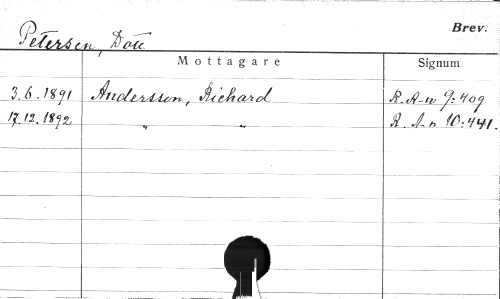 Brev.
Petersen, Dotti
Mottagare Signum
3.6.1891 Andersson, Richard R. A-n 9:409
17.12.1892 " " R. A-n 10:441.